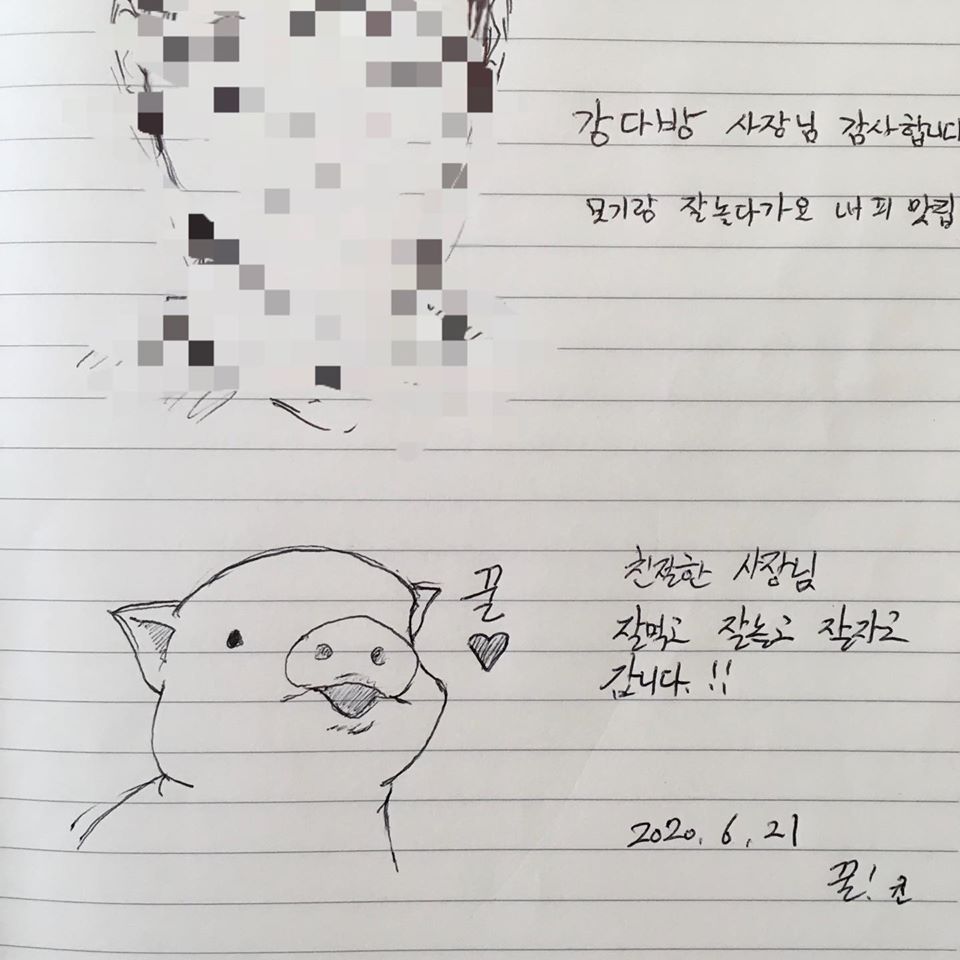 강다방 사장님 감사합니다
모기랑 잘놀다가오 내 피 맛립
꿀
친절한 사장님
잘먹고 잘놀고 잘자고
갑니다. !!
2020. 6. 21
꿀! 큰